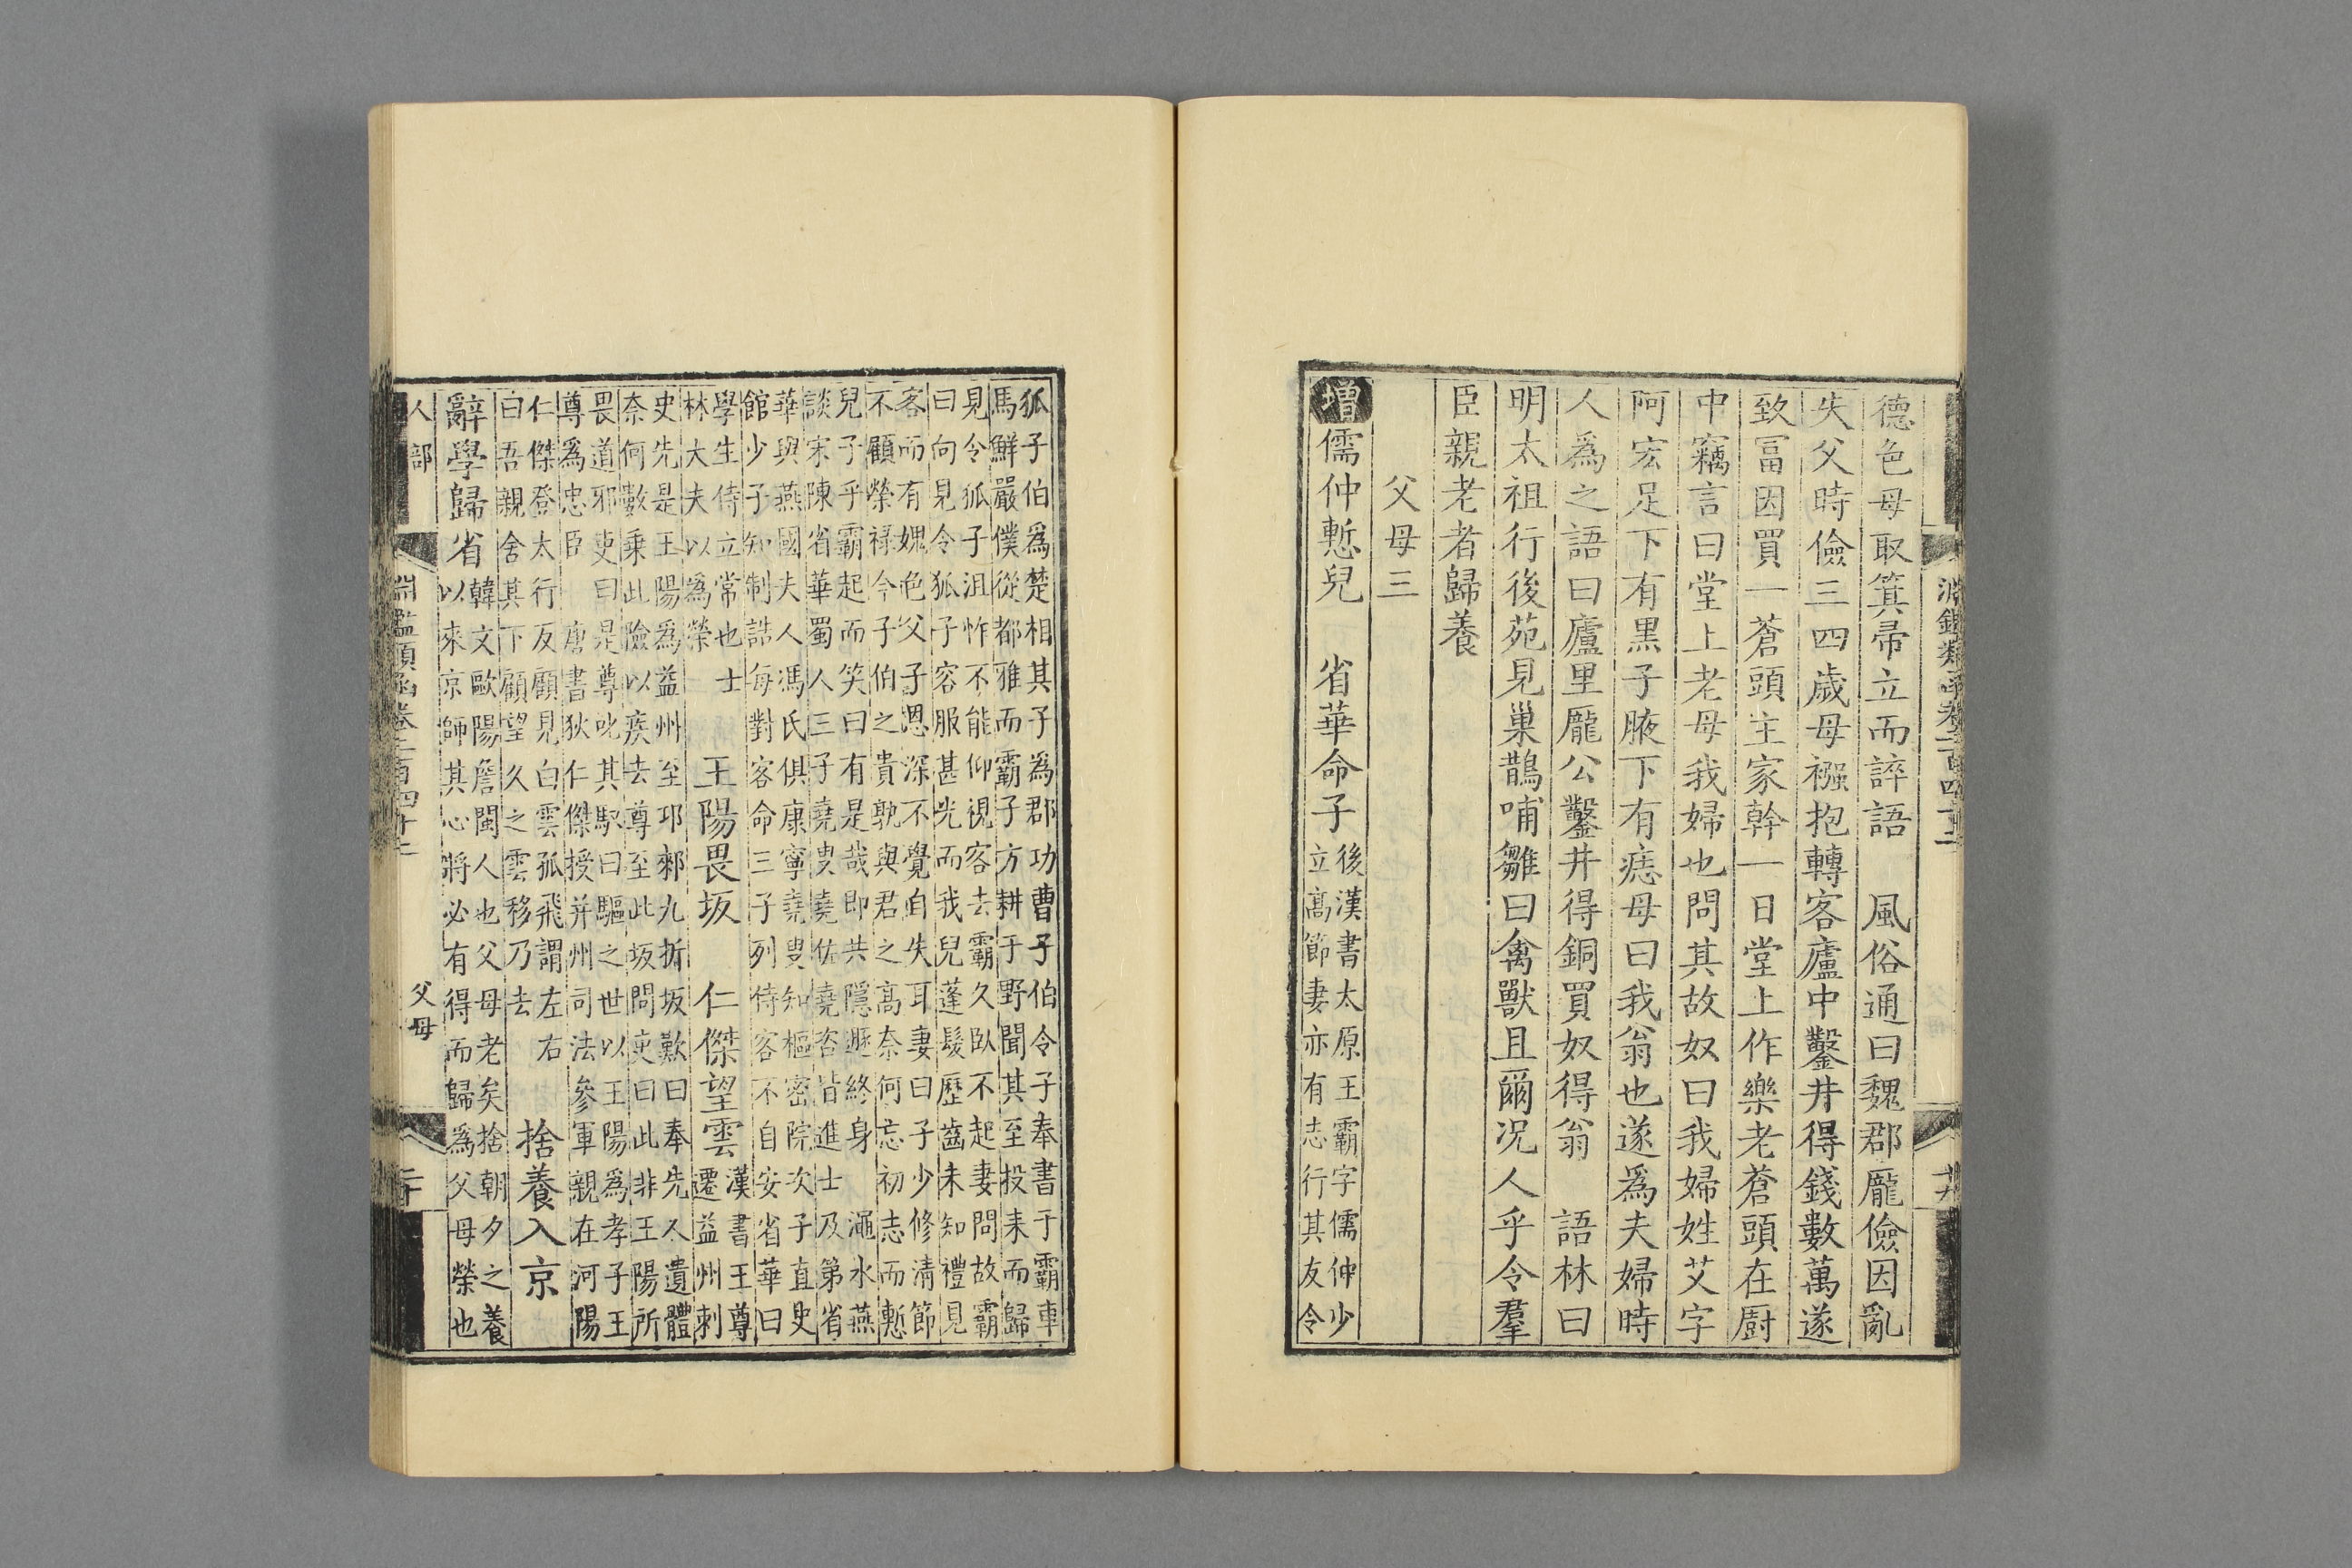 德色母取箕帚立而誶語　風俗通曰魏郡龐儉因亂
失父時儉三四歲母襁抱轉客廬中鑿井得錢數萬遂
致冨因買一蒼頭主家幹一日堂上作樂老蒼頭在廚
中竊言曰堂上老母我婦也問其故奴曰我婦姓艾字
阿宏足下有黑子腋下有痣母曰我翁也遂爲夫婦時
人爲之語曰廬里龐公鑿井得銅買奴得翁　語林曰
明太祖行後苑見巢鵲哺雛曰禽獸且爾况人乎令羣
臣親老者歸養
父母三
增儒仲慙兒　省華命子
後漢書太原王霸字儒仲少
立高節妻亦有志行其友令
狐子伯爲楚相其子爲郡功曹子伯令子奉書于霸車
馬鮮嚴僕從都雅而霸子方耕于野聞其至投耒而歸
見令狐子沮怍不能仰視客去霸久臥不起妻問故霸
曰向見令狐子容服甚光而我兒蓬髮歷齒未知禮見
客而有媿色父子恩深不覺自失耳妻曰子少修清節
不顧榮祿今子伯之貴孰與君之高奈何忘初志而慙
兒子乎霸起而笑曰有是哉即共隱遯終身　澠水燕
談宋陳省華蜀人三子堯叟堯佐堯咨皆進士及第省
華與燕國夫人馮氏俱康寧堯叟知樞密院次子直史
館少子知制誥每對客命三子列侍客不自安省華曰
學生侍立常也士
林大夫以爲榮
王陽畏坂　仁傑望雲
漢書王尊
遷益州刺
史先是王陽爲益州至邛郲九折坂歎曰奉先人遺體
奈何數乘此險以疾去尊至此坂問吏曰此非王陽所
畏道邪吏曰是尊叱其馭曰驅之世以王陽爲孝子王
尊爲忠臣　唐書狄仁傑授并州司法參軍親在河陽
仁傑登太行反顧見白雲孤飛謂左右
曰吾親舍其下顧望久之雲移乃去
捨養入京
辭學歸省
韓文歐陽詹閩人也父母老矣捨朝夕之養
以來京師其心將必有得而歸爲父母榮也
人部
淵鑑類函卷二百四十二
父母
二十